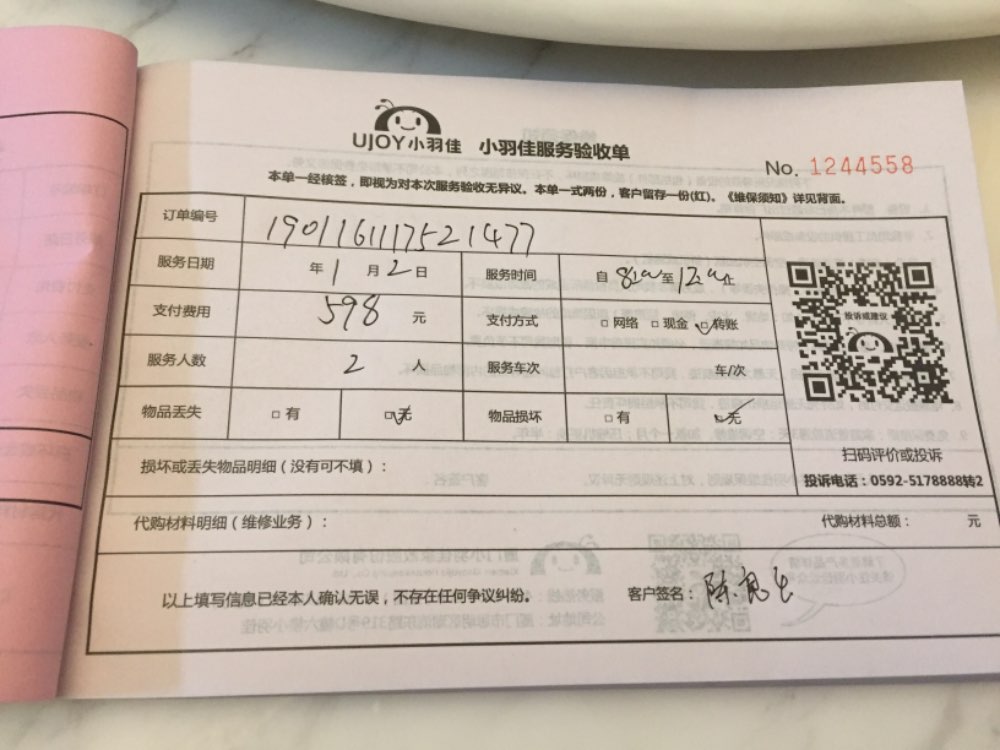 UJOY小羽佳 小羽佳服务验收单
No. 1244558
本单一经核签，即视为对本次服务验收无异议。本单一式两份，客户留存一份(红)。《维保须知》详见背面。
订单编号 190116111752147​7
服务日期 年 1 月 2 日 服务时间 自 8:00 至 12:00 止
支付费用 598 元 支付方式 □网络 □现金 ☑转账
服务人数 2 人 服务车次 车/次
物品丢失 □有 ☑无 物品损坏 □有 ☑无
投诉或建议
扫码评价或投诉
投诉电话：0592-5178888转2
损坏或丢失物品明细（没有可不填）：
代购材料明细（维修业务）： 代购材料总额： 元
以上填写信息已经本人确认无误，不存在任何争议纠纷。 客户签名：陈